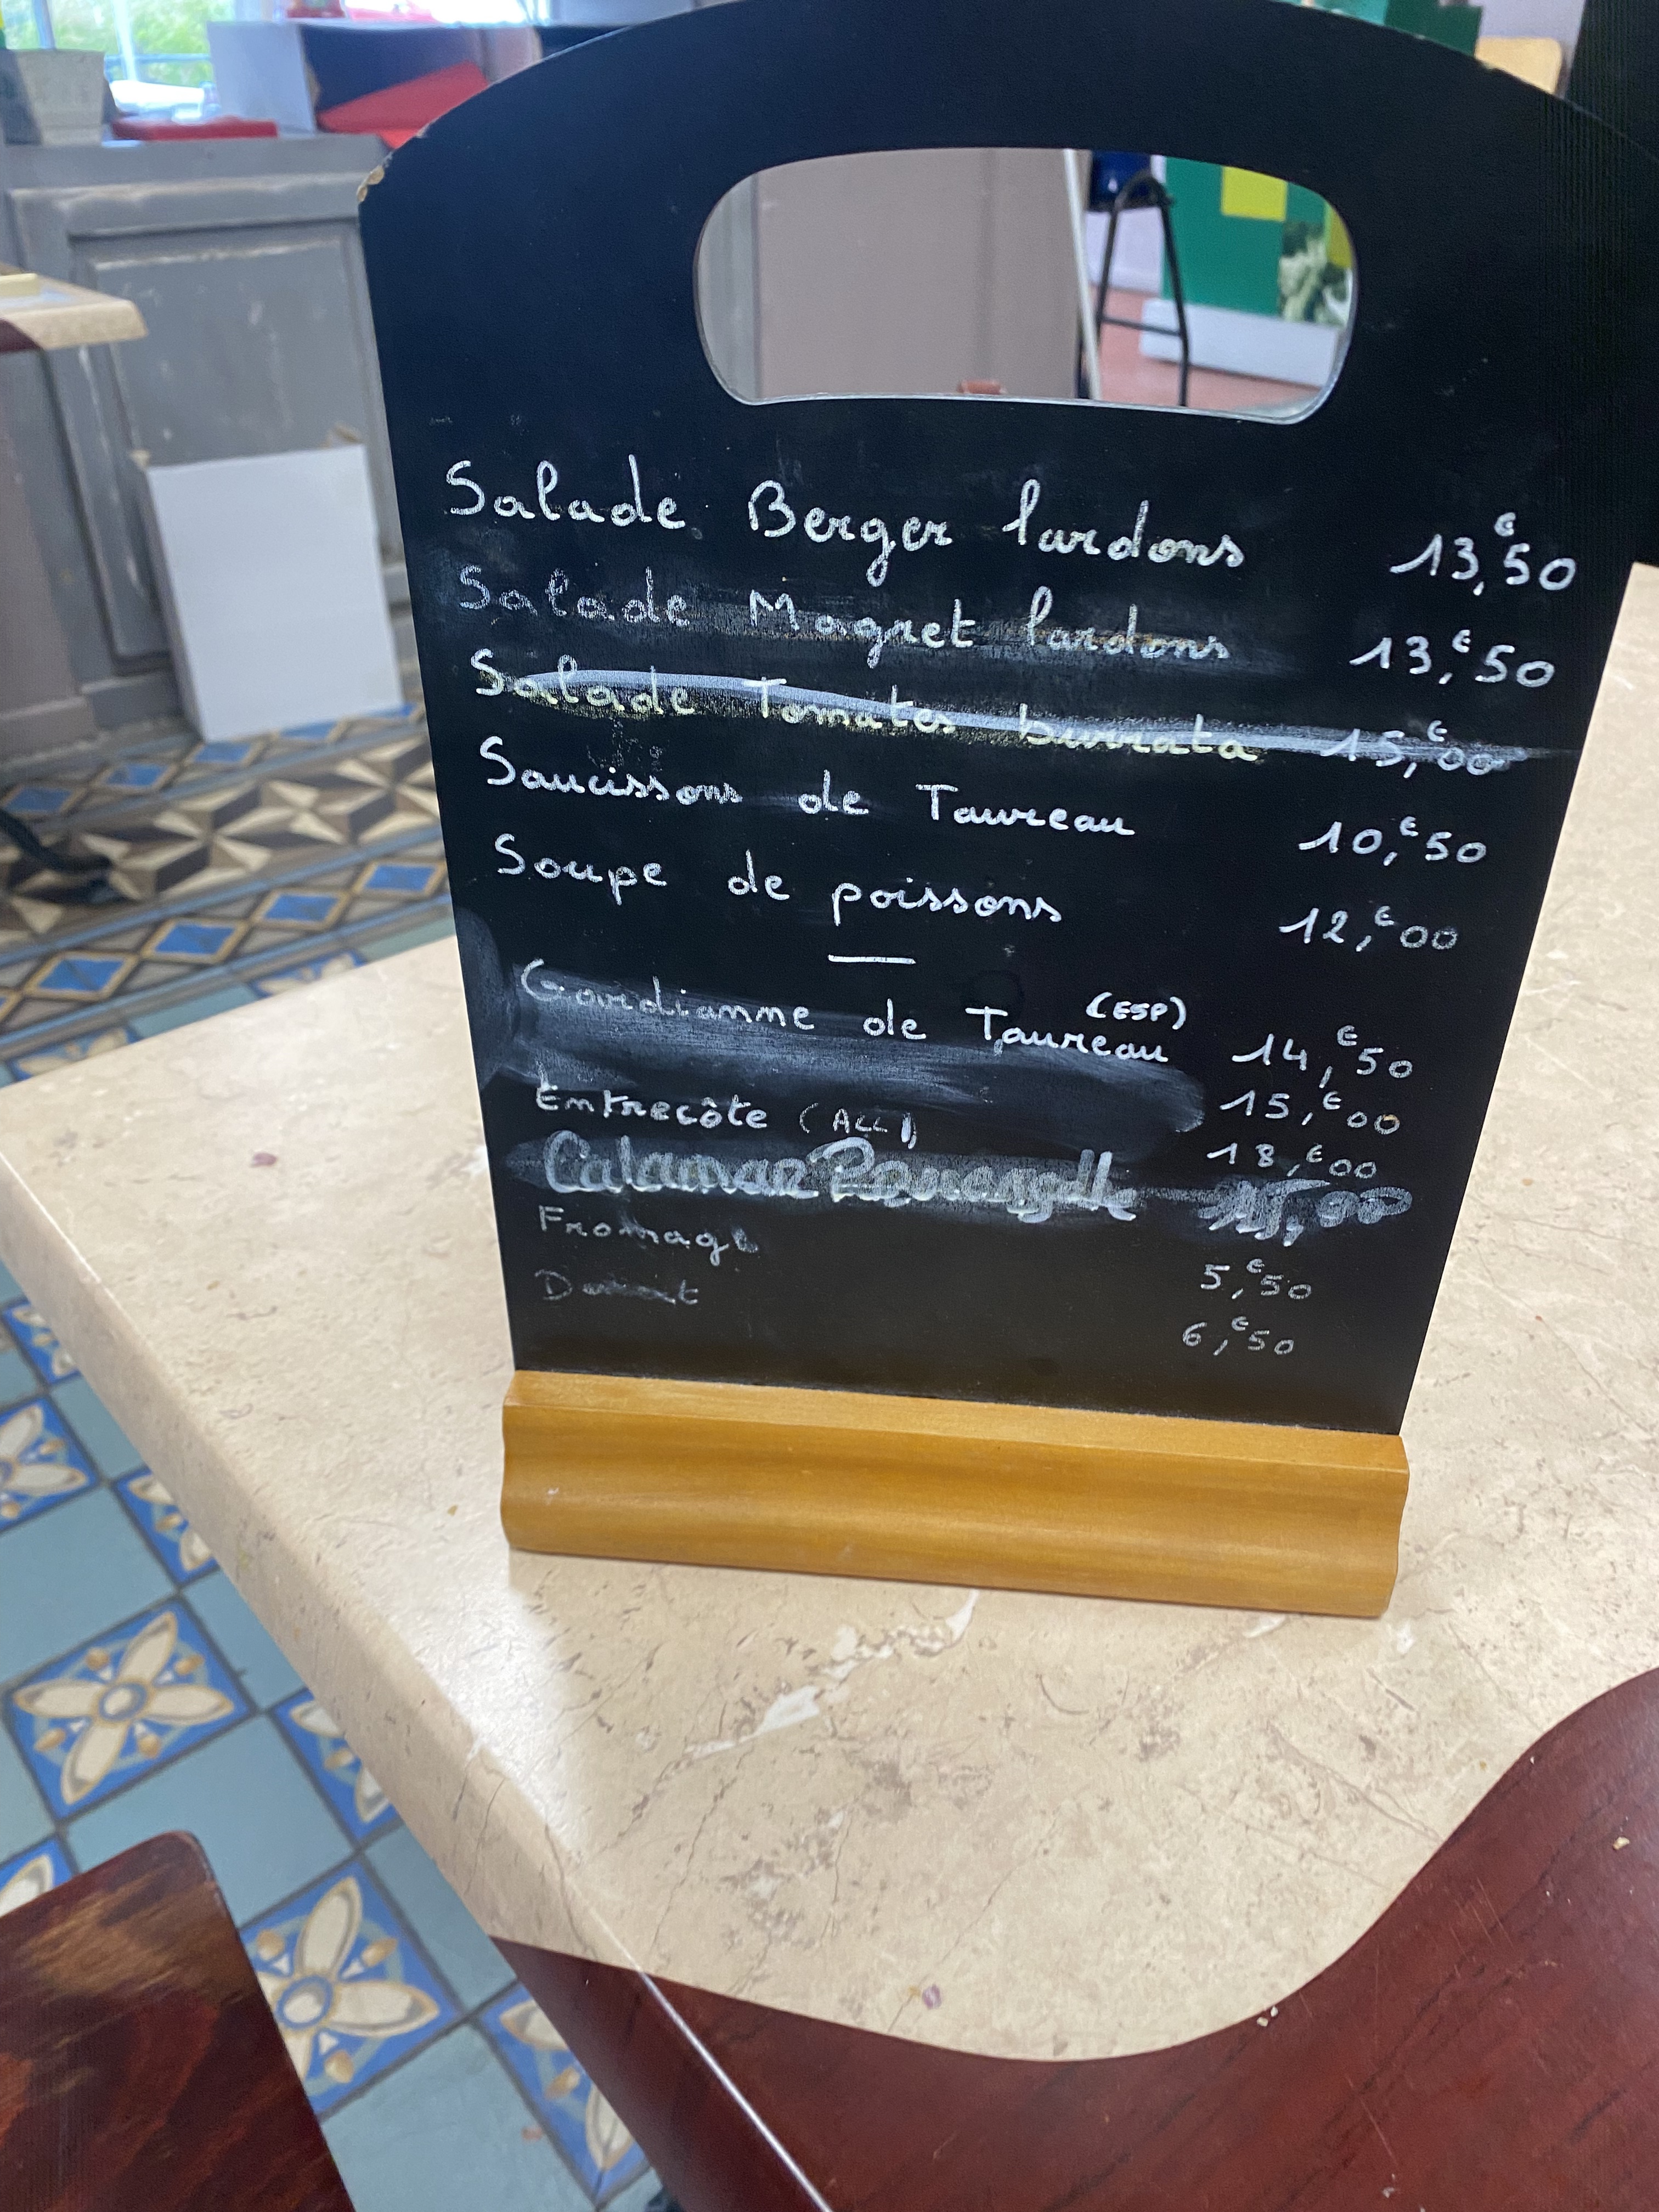 Salade Berger lardons 13,€50
Salade Magret lardons 13,€50
Salade Tomates burrata 15,€00
Saucissons de Taureau 10,€50
Soupe de poissons 12,€00
Gardianne de Taureau (ESP) 14,€50
15,€00
Entrecôte (ALL) 18,€00
Calamar 15,00
Fromage 5,€50
6,€50